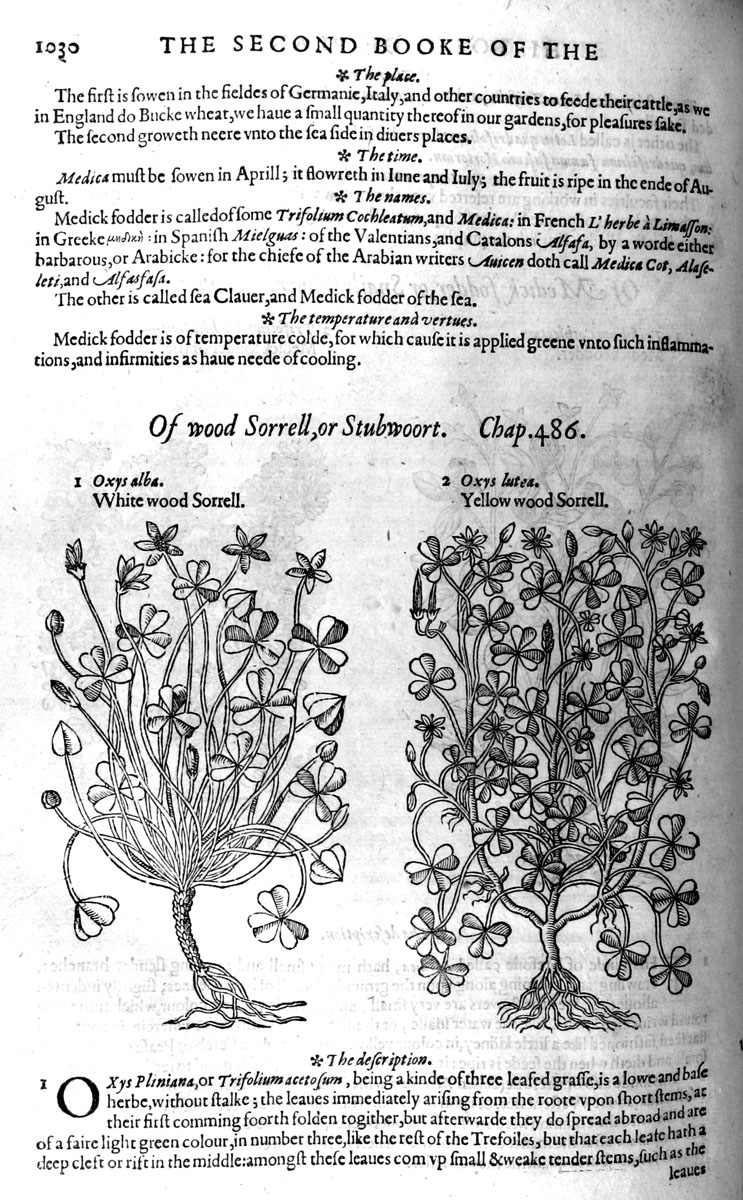 1030 THE SECOND BOOKE OF THE
✲ The place.
The firſt is ſowen in the fieldes of Germanie,Italy,and other countries to feede their cattle,as we
in England do Bucke wheat,we haue a ſmall quantity thereof in our gardens,for pleaſures ſake.
The ſecond groweth neere vnto the ſea ſide in diuers places.
✲ The time.
Medica muſt be ſowen in Aprill; it flowreth in Iune and Iuly; the fruit is ripe in the ende of Au-
guſt. ✲ The names.
Medick fodder is called of ſome Trifolium Cochleatum,and Medica: in French L'herbe à Limaſſon:
in Greeke μηδικὴ: in Spaniſh Mielguas: of the Valentians,and Catalons Alfafa, by a worde either
barbarous,or Arabicke: for the chiefe of the Arabian writers Auicen doth call Medica Cot, Alaſe-
leti,and Alfasfaſa.
The other is called ſea Clauer,and Medick fodder of the ſea.
✲ The temperature and vertues.
Medick fodder is of temperature colde,for which cauſe it is applied greene vnto ſuch inflamma-
tions,and infirmities as haue neede of cooling.
Of wood Sorrell,or Stubwoort. Chap.486.
1 Oxys alba.
White wood Sorrell.
2 Oxys lutea.
Yellow wood Sorrell.
✲ The deſcription.
1 OXys Pliniana,or Trifolium acetoſum, being a kinde of three leafed graſſe,is a lowe and baſe
herbe,without ſtalke; the leaues immediately ariſing from the roote vpon ſhort ſtems, at
their firſt comming foorth folden togither,but afterwarde they do ſpread abroad and are
of a faire light green colour,in number three,like the reſt of the Trefoiles, but that each leafe hath a
deep cleft or rift in the middle:amongſt theſe leaues com vp ſmall &weake tender ſtems,ſuch as the
leaues